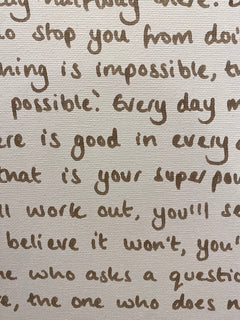 halfway there.
o stop you from doi
hing is impossible, t
possible'. Every day m
ere is good in every
that is your super pow
ll work out, you'll se
believe it won't, you'
ne who asks a questio
e, the one who does n